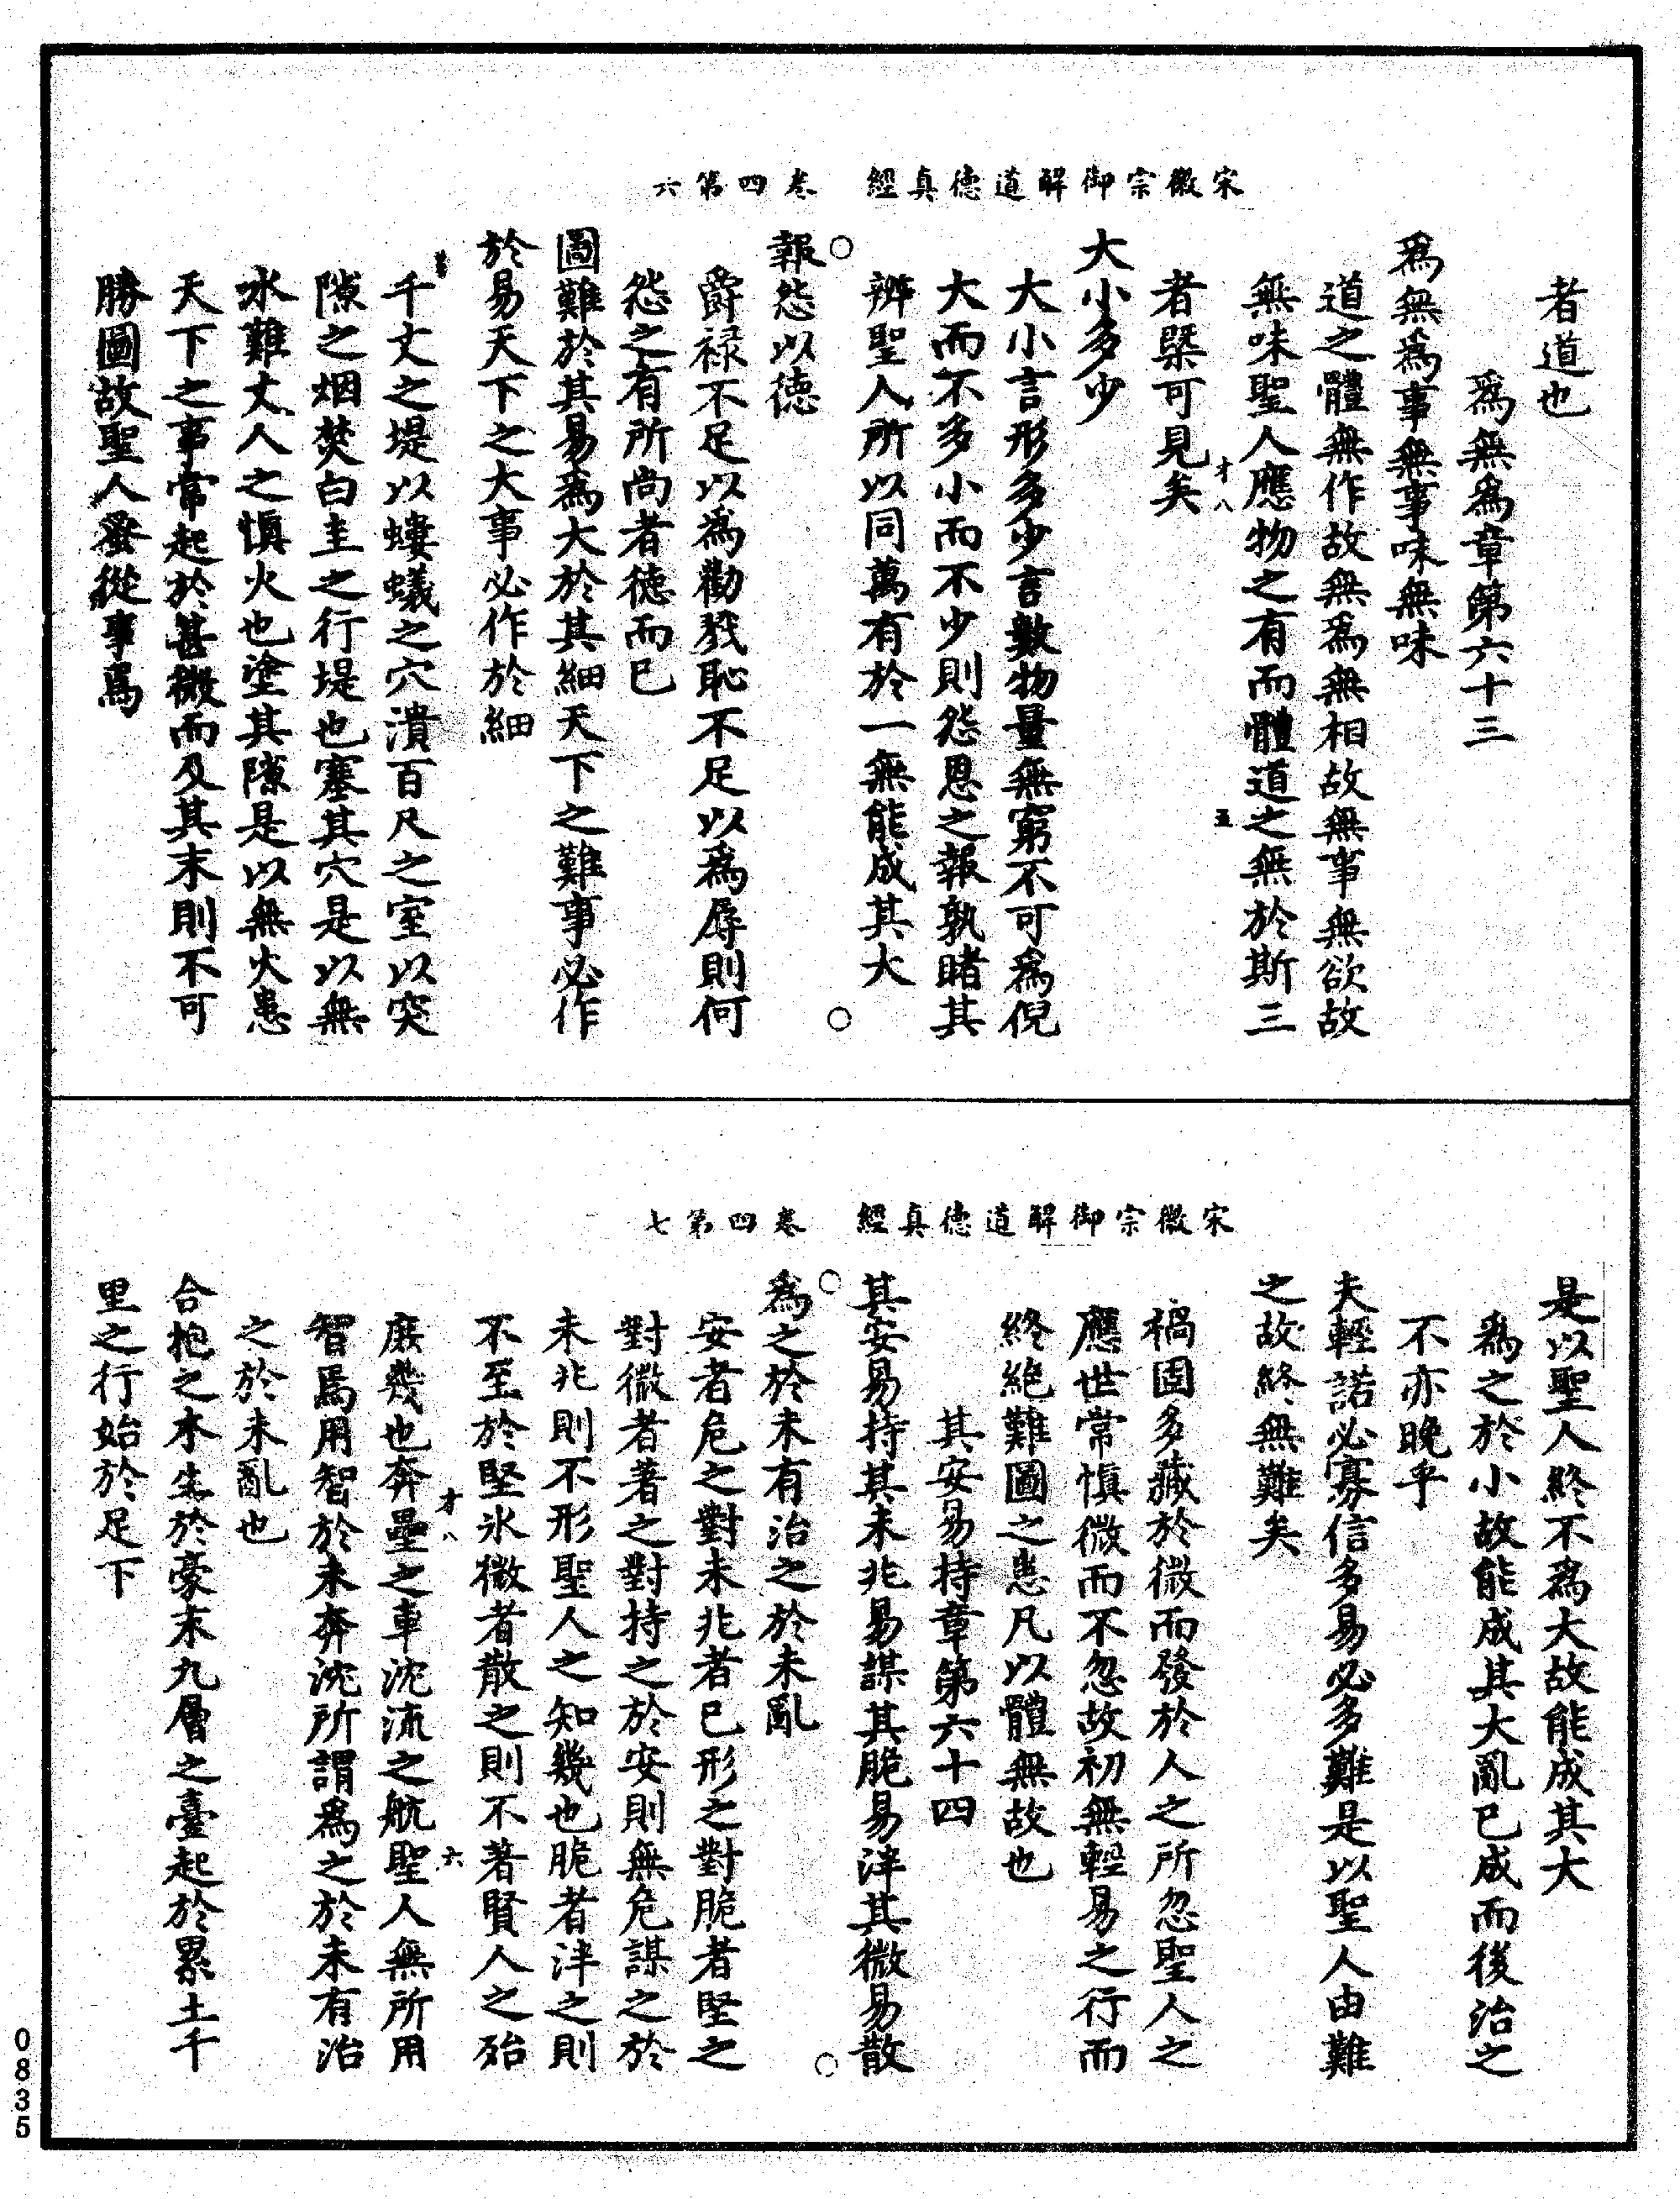 宋徽宗御解道德真經　卷四第六
者道也
爲無爲章第六十三
爲無爲事無事味無味
道之體無作故無爲無相故無事無欲故
無味聖人應物之有而體道之無於斯三
才八　五
者槩可見矣
大小多少
大小言形多少言數物量無窮不可爲倪
大而不多小而不少則怨恩之報孰睹其
辨聖人所以同萬有於一無能成其大
報怨以德
爵祿不足以爲勸戮恥不足以爲辱則何
怨之有所尚者德而已
圖難於其易爲大於其細天下之難事必作
於易天下之大事必作於細
千丈之堤以螻蟻之穴潰百尺之室以突
隙之烟焚白圭之行堤也塞其穴是以無
水難丈人之慎火也塗其隙是以無火患
天下之事常起於甚微而及其末則不可
勝圖故聖人蚤從事焉
宋徽宗御解道德真經　卷四第七
是以聖人終不爲大故能成其大
爲之於小故能成其大亂已成而後治之
不亦晚乎
夫輕諾必寡信多易必多難是以聖人由難
之故終無難矣
禍固多藏於微而發於人之所忽聖人之
應世常慎微而不忽故初無輕易之行而
終絕難圖之患凡以體無故也
其安易持章第六十四
其安易持其未兆易謀其脆易泮其微易散
爲之於未有治之於未亂
安者危之對未兆者已形之對脆者堅之
對微者著之對持之於安則無危謀之於
未兆則不形聖人之知幾也脆者泮之則
不至於堅冰微者散之則不著賢人之殆
才八　六
庶幾也奔壘之車沈流之航聖人無所用
智焉用智於未奔沈所謂爲之於未有治
之於未亂也
合抱之木生於豪末九層之臺起於累土千
里之行始於足下
0835